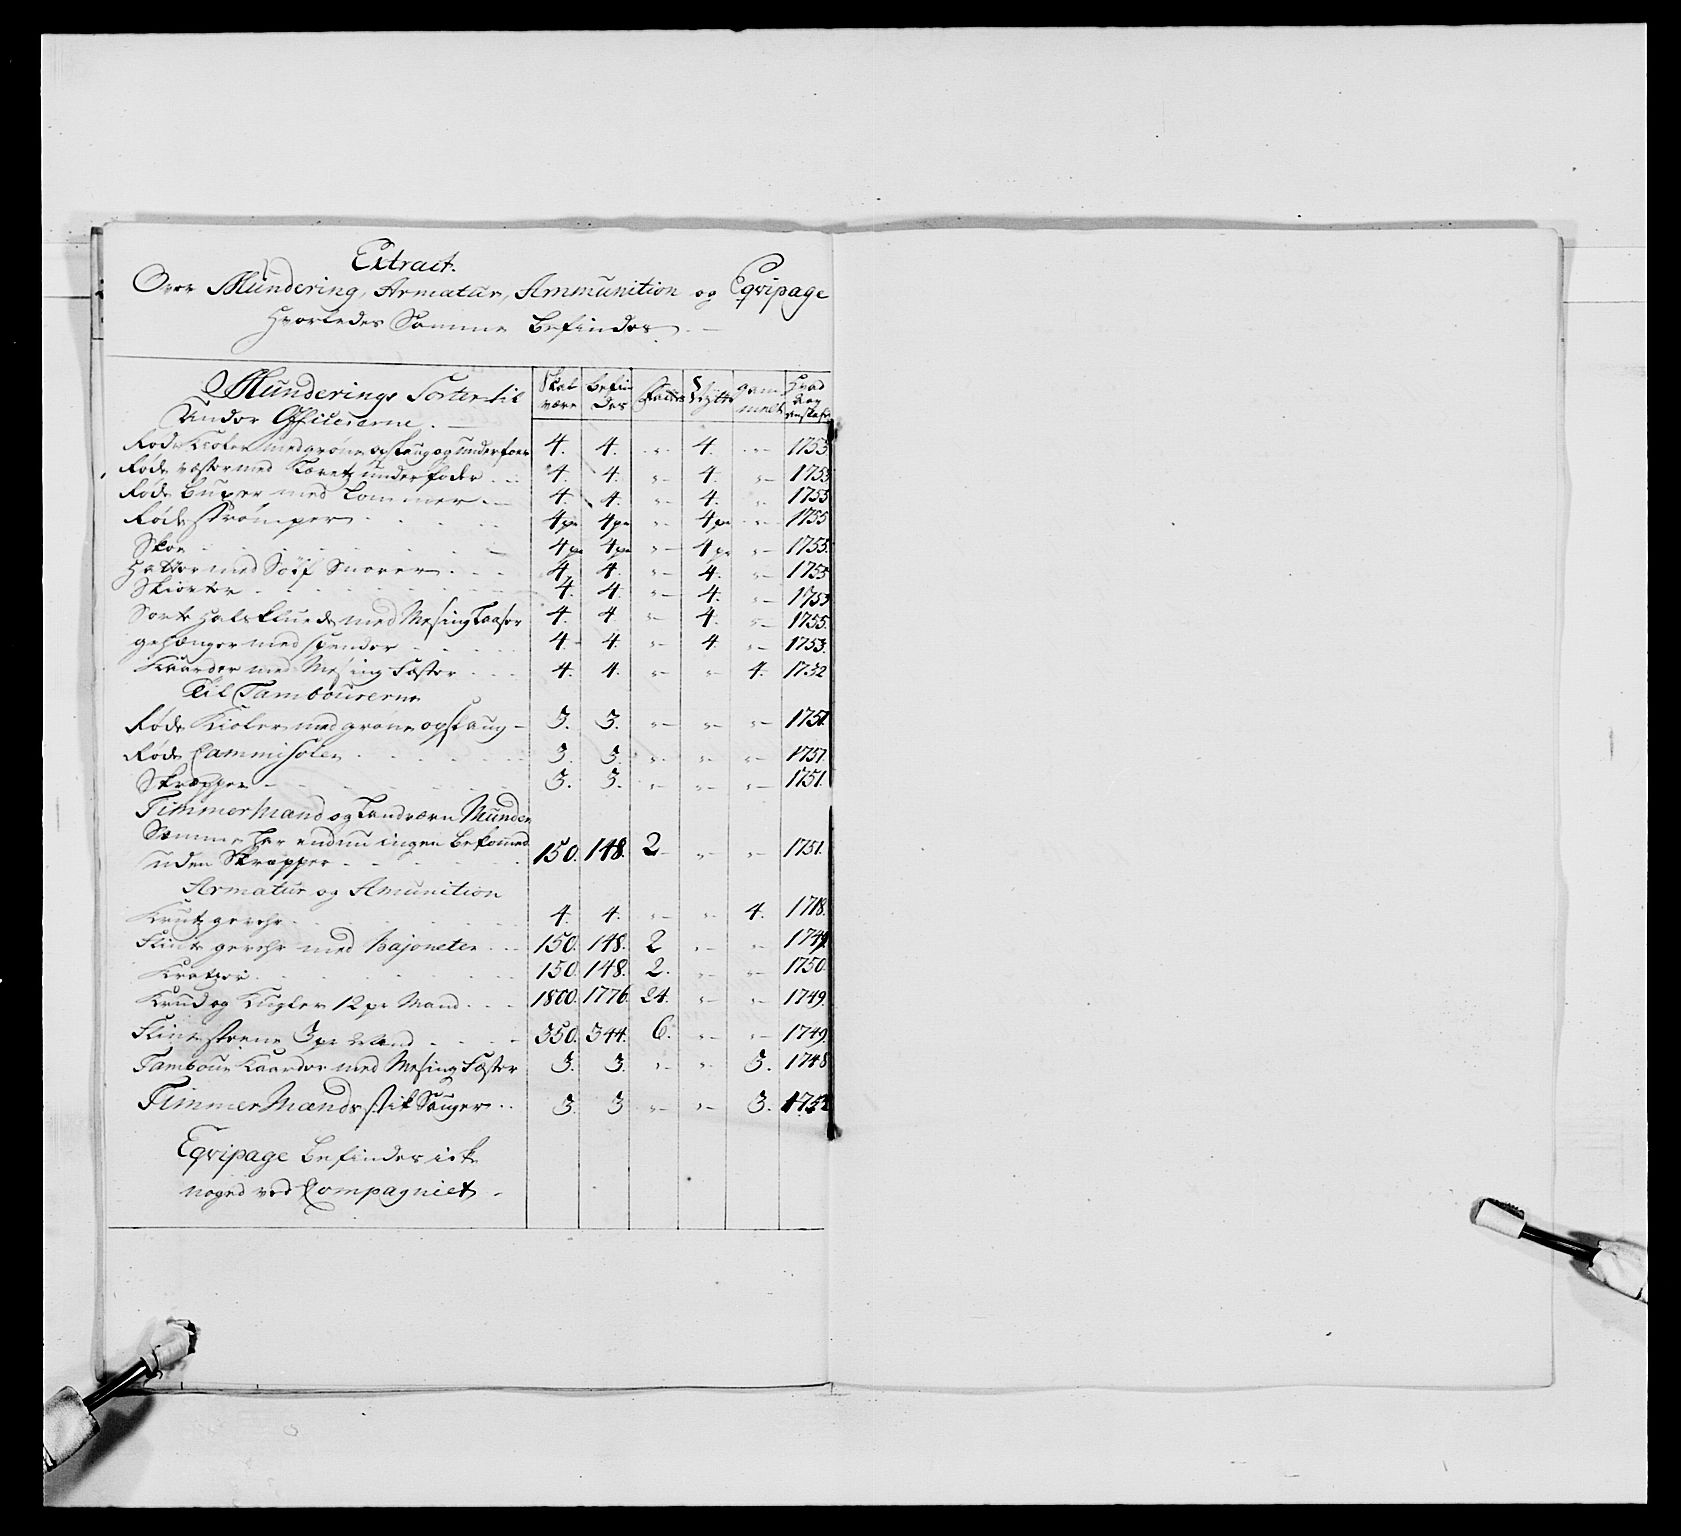 Extract.
Over Mundering, Armatur, Ammunition og Eqvipage
Hvorledes Samme befindes. —
Munderings Sorter til | Skal være | befindes | | Nytt | gammelt | Hvad Aar
Under Officererne. —
Røde Kioler med grøne opslaug og underfoer | 4. | 4. | „ | 4. | „ | 1753
Røde vester med underfoder | 4. | 4. | „ | 4. | „ | 1753
Røde buxer med Lommer | 4. | 4. | „ | 4. | „ | 1753
Røde strømper | 4 pr | 4 pr | „ | 4 pr | „ | 1755
Skoe | 4 pr | 4 pr | „ | 4 pr | „ | 1755.
Hatter med Snorer | 4. | 4. | „ | 4. | „ | 1755
Skiorter | 4. | 4. | „ | 4. | „ | 1753
Sorte Halsklude med Mesing Laaser | 4. | 4. | „ | 4. | „ | 1755.
gehænger med spender | 4. | 4. | „ | 4. | „ | 1753.
Kaarder med Mesing Fæster | 4. | 4. | „ | „ | 4. | 1732
Til Tambourerne
Røde Kioler med grøne opslaug | 3. | 3. | „ | „ | „ | 1751.
Røde Cammisoler | 3. | 3. | „ | „ | „ | 1751.
Skrepper | 3. | 3. | „ | „ | „ | 1751.
Timmermand og Landværn Munder
Samme har endnu ingen bekommed
uden Skrepper | 150. | 148. | 2 | „ | „ | 1751.
Armatur og Amunition
gevehr | 4. | 4. | „ | „ | 4. | 1718.
Flint gevehr med bajoneter | 150. | 148. | 2 | „ | „ | 1749
Kratzer | 150. | 148. | 2. | „ | „ | 1750.
Krud og Kugler 12 pr Mand | 1800. | 1776. | 24. | „ | „ | 1749.
Flint steene 3 pr Mand | 350. | 344. | 6. | „ | „ | 1749.
Tambour Kaarder med Mesing Fæster | 3. | 3. | „ | „ | 3. | 1748
Timmer Mands stik Sauger | 3. | 3 | „ | „ | 3. | 1752
Eqvipage befindes icke
noged ved Compagniet.